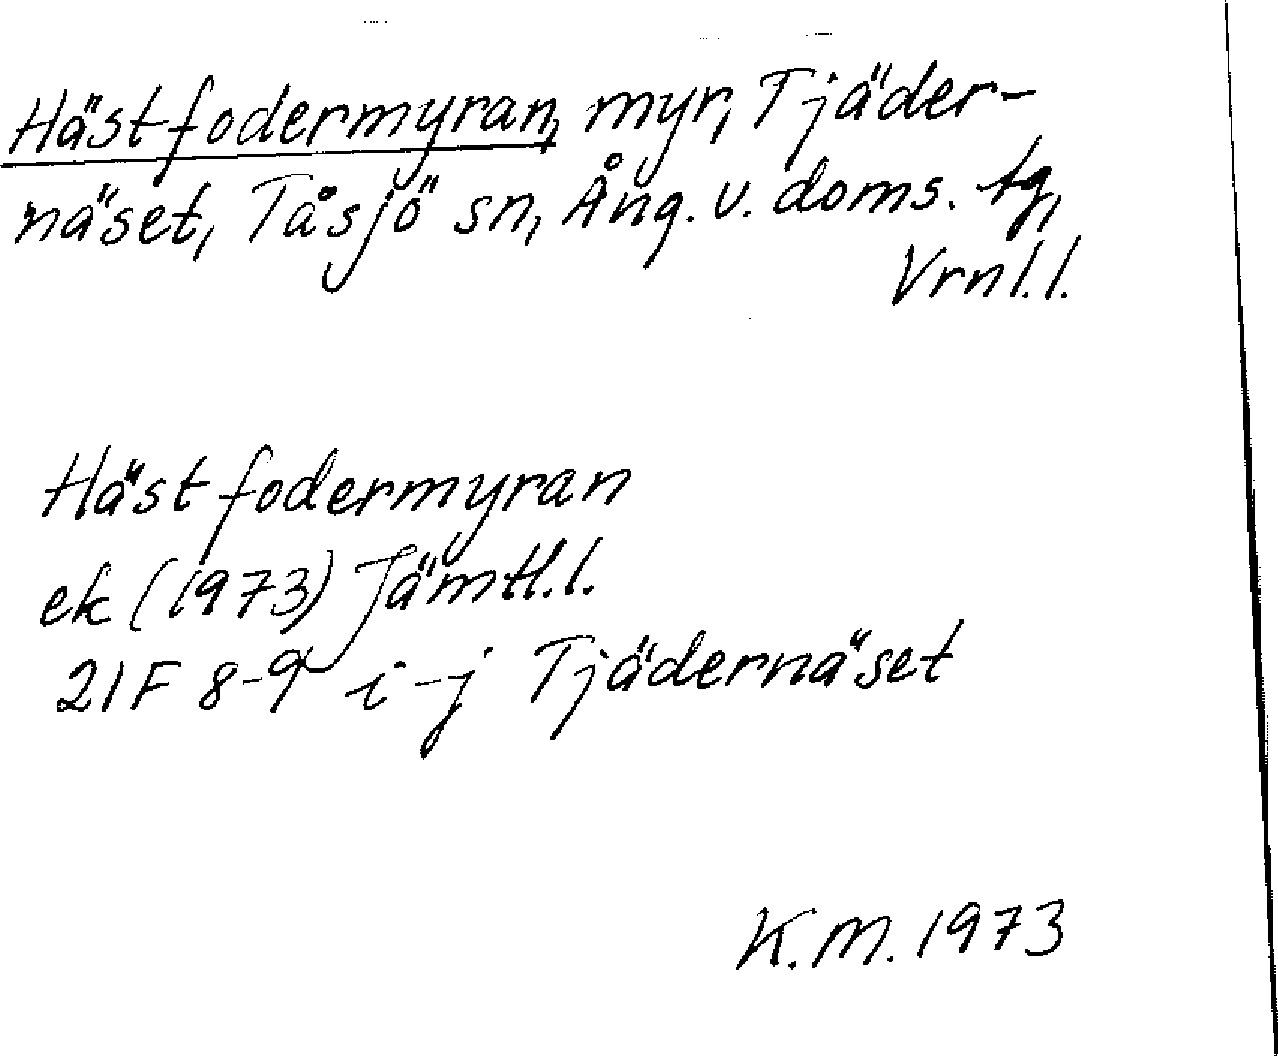 Hästfodermyran, myr, Tjäder-
näset, Tåsjö sn, Ång. v. doms. tg,
Vrnl. l.
Hästfodermyran
ek (1973) Jämtl. l.
21F 8-9 i-j Tjädernäset
K.M. 1973